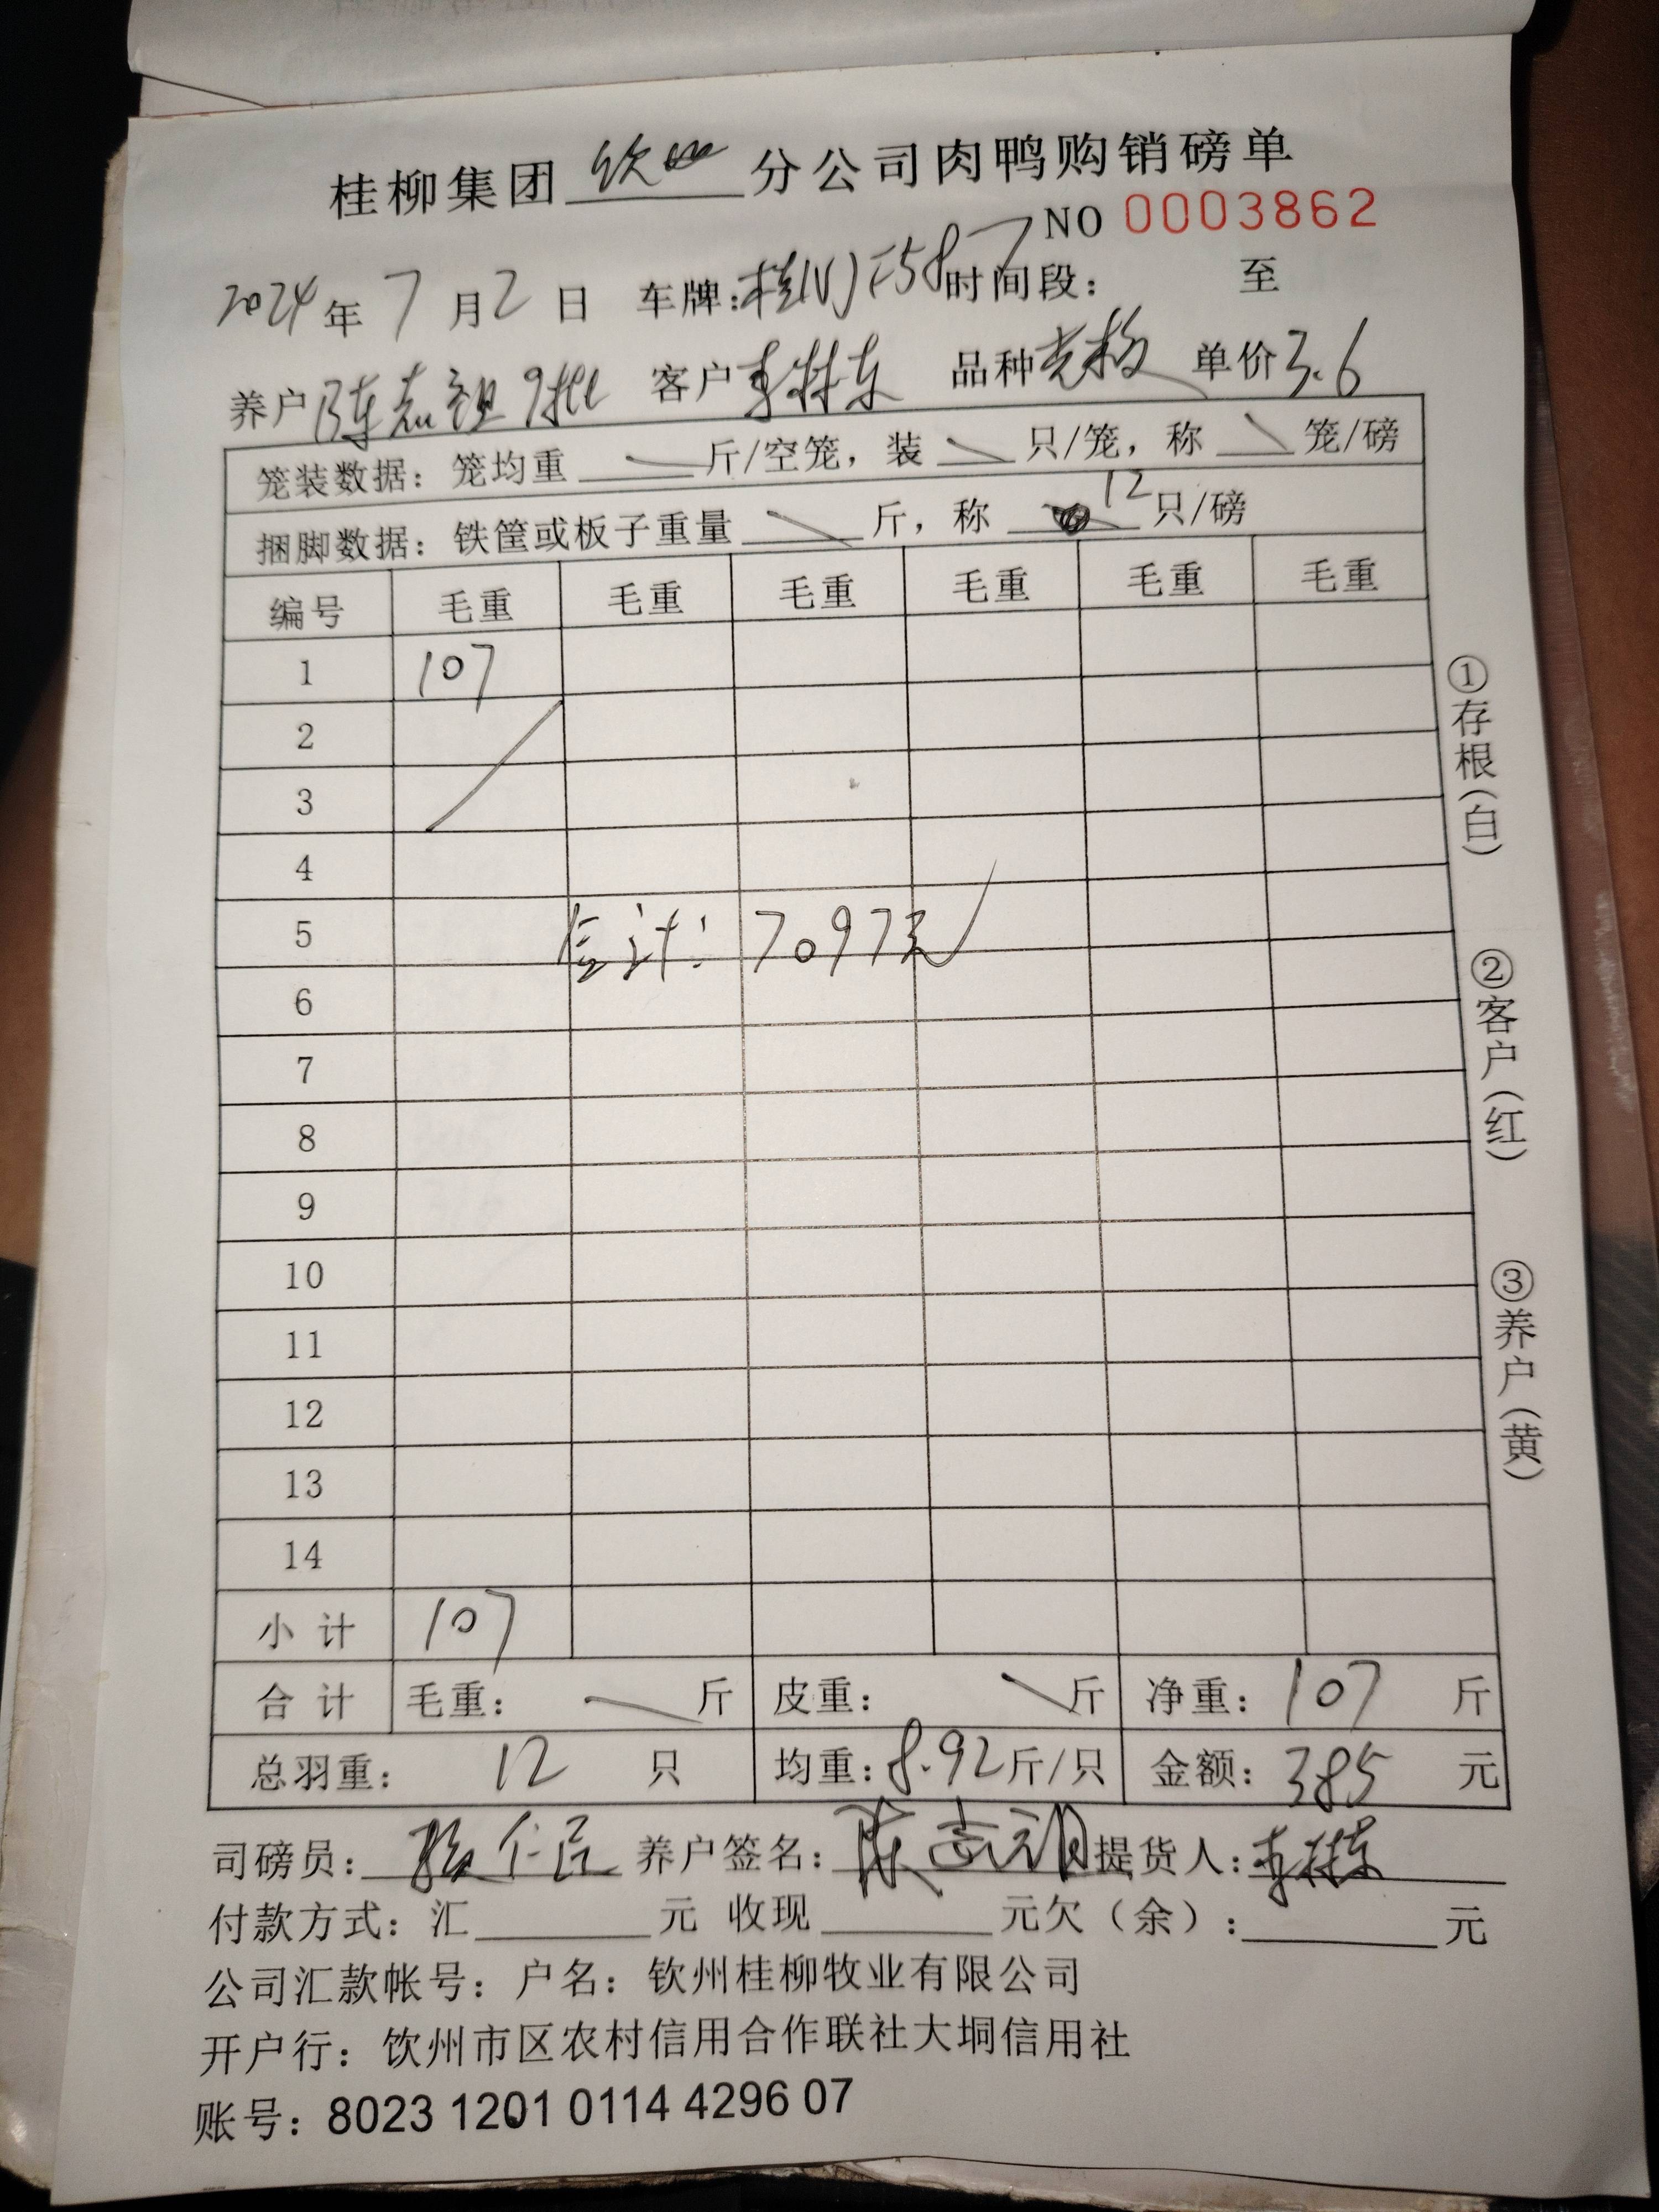 桂柳集团 钦州 分公司肉鸭购销磅单
NO 0003862
2024年7月2日 车牌: 时间段: 至
养户 陈志祖9批 客户 李林东 品种 单价3.6
笼装数据：笼均重 斤/空笼，装 只/笼，称 笼/磅
捆脚数据：铁筐或板子重量 斤，称 12只/磅
编号 毛重 毛重 毛重 毛重 毛重 毛重
1 107
2
3
4
5 合计: 7097元
6
7
8
9
10
11
12
13
14
小计 107
合计 毛重： 斤 皮重： 斤 净重：107 斤
总羽重： 12 只 均重：8.92斤/只 金额：385 元
司磅员: 养户签名: 陈志祖 提货人: 李林东
付款方式：汇 元 收现 元欠（余）: 元
公司汇款帐号：户名：钦州桂柳牧业有限公司
开户行：钦州市区农村信用合作联社大垌信用社
账号：8023 1201 0114 4296 07
①存根(白)
②客户(红)
③养户(黄)